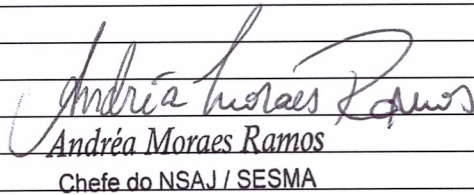 Andréa Moraes Ramos
Andréa Moraes Ramos
Chefe do NSAJ / SESMA